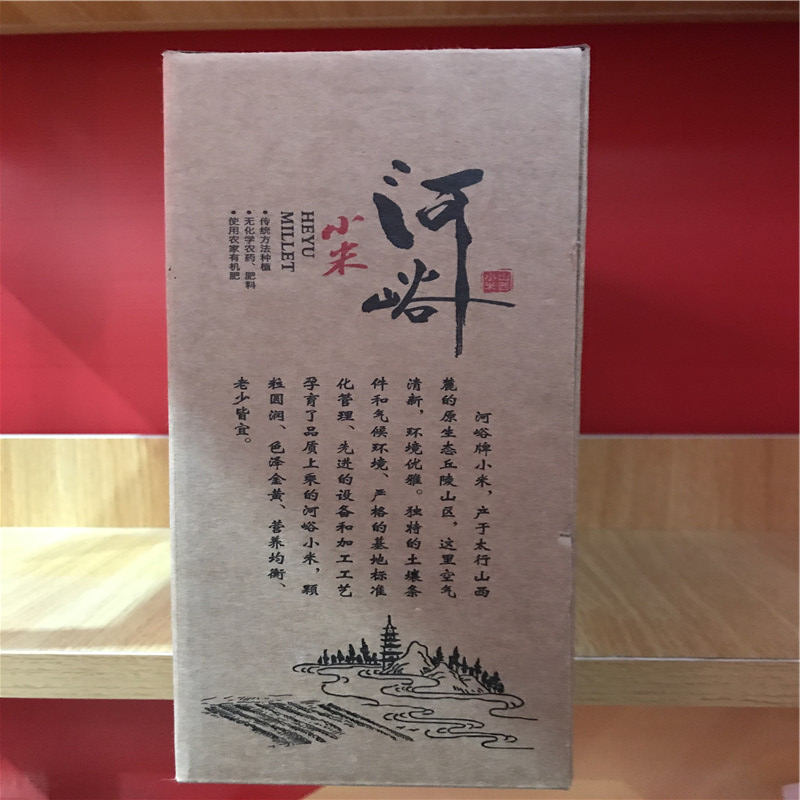 河峪
山西
小米
小米
HEYU
MILLET
•传统方法种植
•无化学农药、肥料
•使用农家有机肥
河峪牌小米，产于太行山西
麓的原生态丘陵山区，这里空气
清新，环境优雅。独特的土壤条
件和气候环境、严格的基地标准
化管理、先进的设备和加工工艺
孕育了品质上乘的河峪小米，颗
粒圆润、色泽金黄、营养均衡、
老少皆宜。